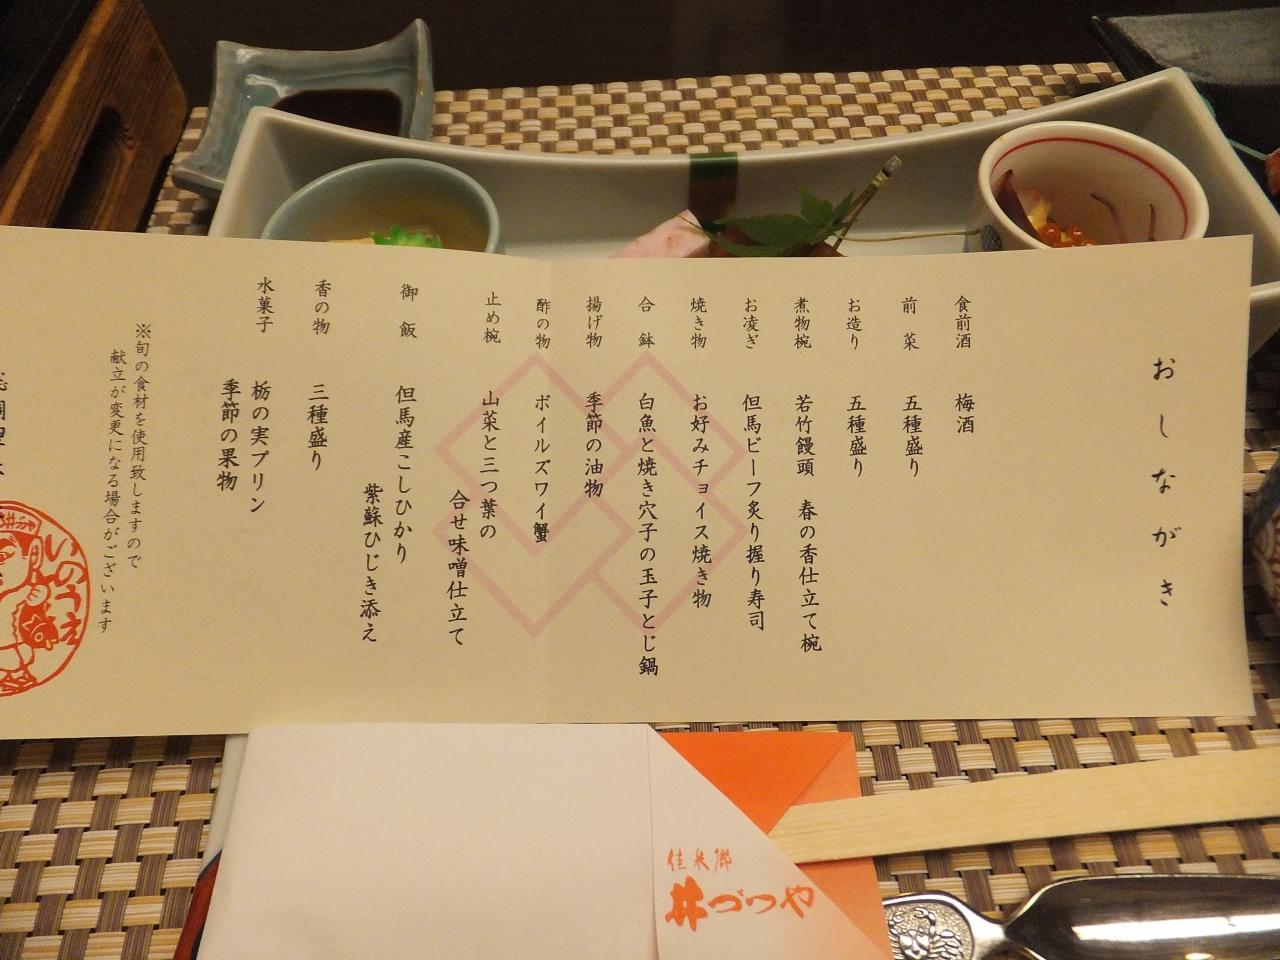 おしながき
食前酒　梅酒
前菜　五種盛り
お造り　五種盛り
煮物椀　若竹饅頭　春の香仕立て椀
お凌ぎ　但馬ビーフ炙り握り寿司
焼き物　お好みチョイス焼き物
合鉢　白魚と焼き穴子の玉子とじ鍋
揚げ物　季節の油物
酢の物　ボイルズワイ蟹
止め椀　山菜と三つ葉の
合せ味噌仕立て
御飯　但馬産こしひかり
紫蘇ひじき添え
香の物　三種盛り
水菓子　栃の実プリン
季節の果物
※旬の食材を使用致しますので
献立が変更になる場合がございます
いのうえ
佳泉郷
井づつや